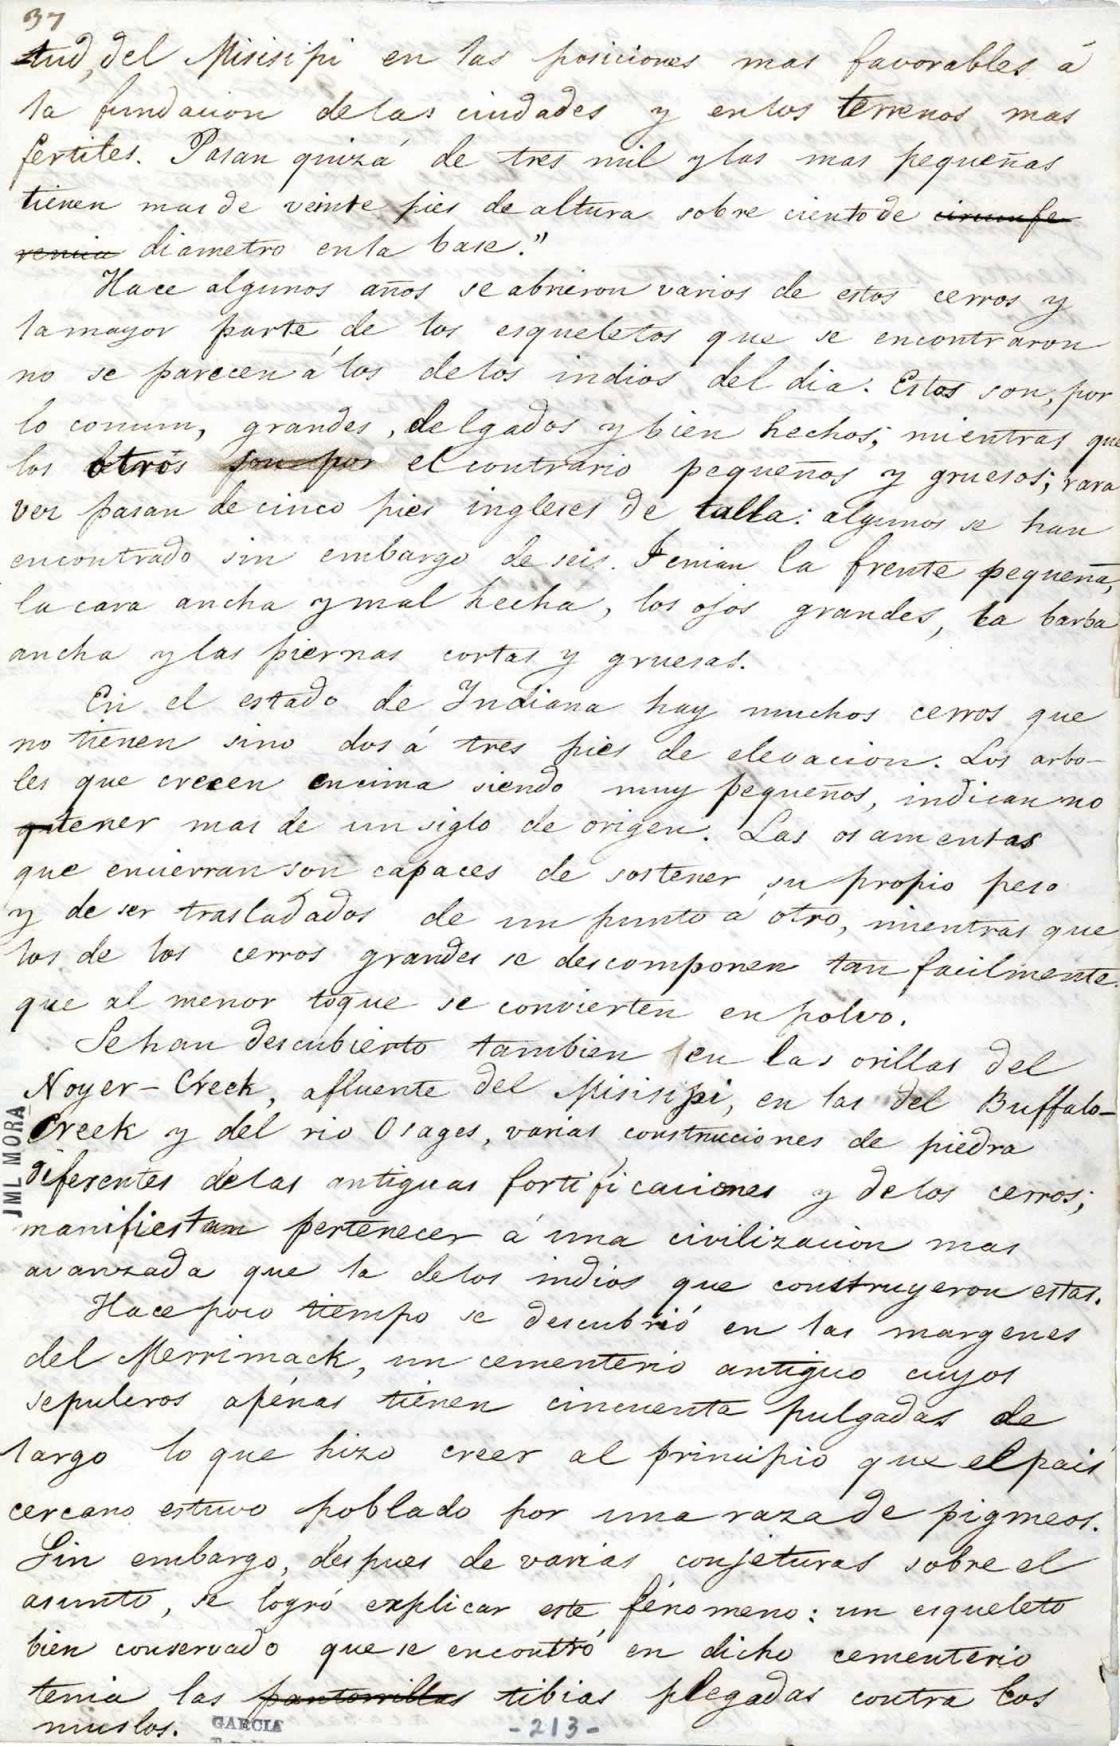 37
tud, del Misisipi en las posiciones mas favorables á
la fundacion de las ciudades y en los terrenos mas
fertiles. Pasan quizá de tres mil y las mas pequeñas
tienen mas de veinte pies de altura sobre ciento de circunfe
rencia diametro en la base."
Hace algunos años se abrieron varios de estos cerros y
la mayor parte de los esqueletos que se encontraron
no se parecen á los de los indios del dia. Estos son, por
lo comun, grandes, delgados y bien hechos; mientras que
los otros son por el contrario pequeños y gruesos; rara
vez pasan de cinco pies ingleses de talla: algunos se han
encontrado sin embargo de seis. Tenian la frente pequeña,
la cara ancha y mal hecha, los ojos grandes, la barba
ancha y las piernas cortas y gruesas.
En el estado de Indiana hay muchos cerros que
no tienen sino dos á tres pies de elevacion. Los arbo-
les que crecen encima siendo muy pequeños, indican no
tener mas de un siglo de origen. Las osamentas
que encierran son capaces de sostener su propio peso
y de ser trasladados de un punto á otro, mientras que
los de los cerros grandes se descomponen tan facilmente
que al menor toque se convierten en polvo.
Se han descubierto tambien en las orillas del
Noyer-Creek, afluente del Misisipi, en las del Buffalo-
Creek y del rio Osages, varias construciones de piedra
diferentes de las antiguas fortificaciones y de los cerros;
manifiestan pertenecer á una civilizacion mas
avanzada que la de los indios que construyeron estas.
Hace poco tiempo se descubrió en las margenes
del Merrimack, un cementerio antiguo cuyos
sepulcros apénas tienen cincuenta pulgadas de
largo lo que hizo creer al principio que el pais
cercano estuvo poblado por una raza de pigmeos.
Sin embargo, despues de varias conjeturas sobre el
asunto, se logró explicar este fénomeno: un esqueleto
bien conservado que se encontró en dicho cementerio
tenia las pantorrillas tibias plegadas contra los
muslos.
JML MORA
GARCIA
-213-